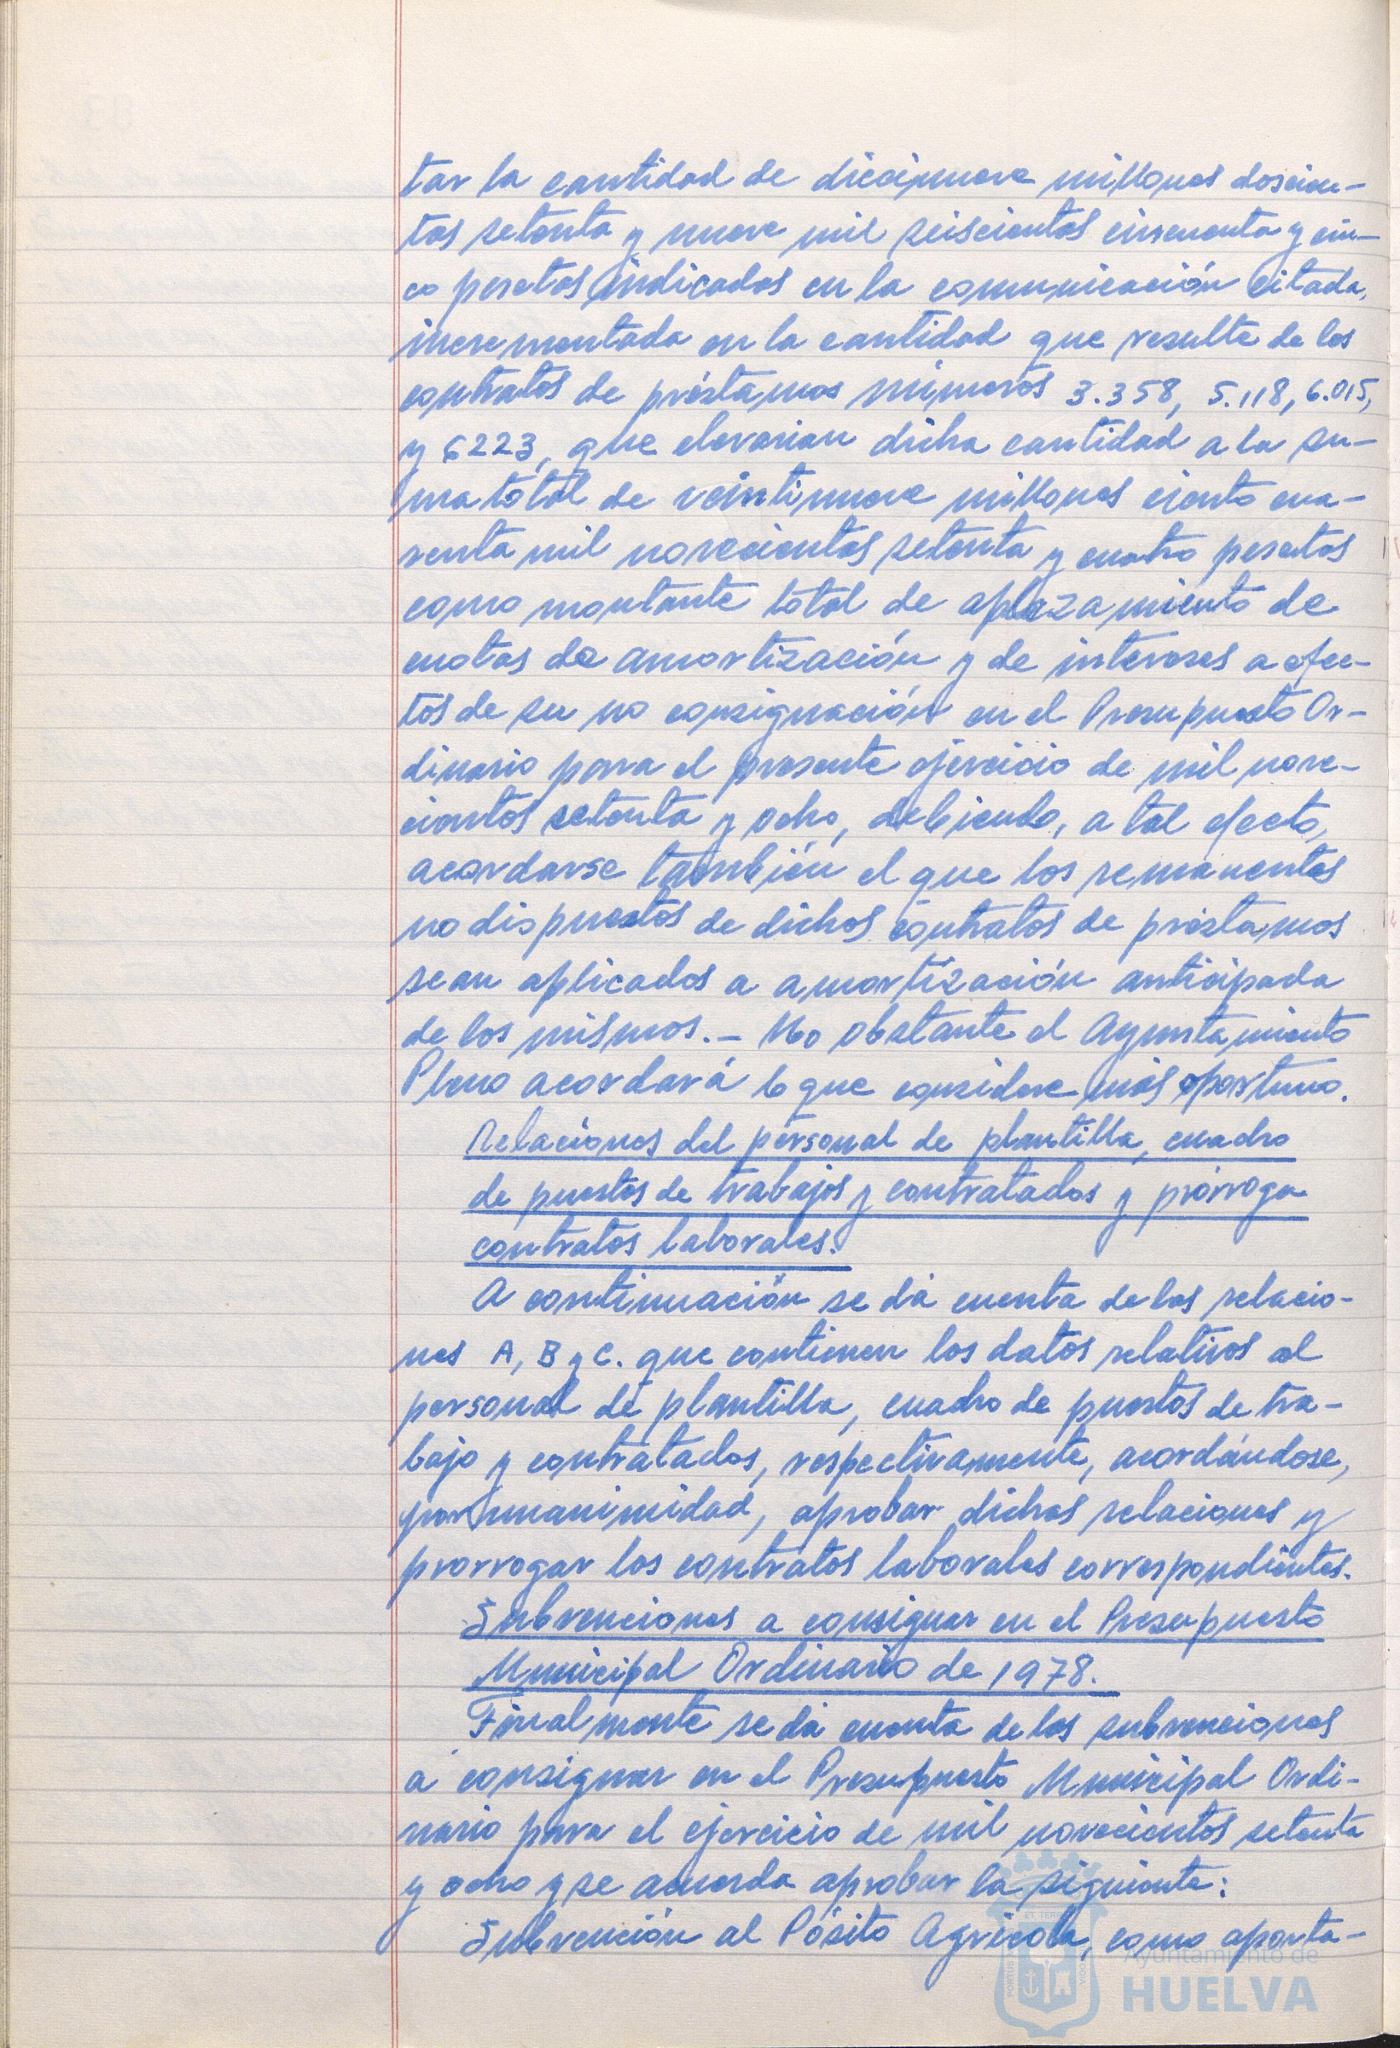 tar la cantidad de diecinueve millones doscien-
tas setenta y nueve mil seiscientas cincuenta y cin-
co pesetas indicadas en la comunicación citada,
incrementada en la cantidad que resulte de los
contratos de préstamos números 3.358, 5.118, 6.015,
y 6223, que elevarian dicha cantidad a la su-
ma total de veintinueve millones ciento cua-
renta mil novecientas setenta y cuatro pesetas
como montante total de aplazamiento de
cuotas de amortización y de intereses a efec-
tos de su no consignación en el Presupuesto Or-
dinario para el presente ejercicio de mil nove-
cientos setenta y ocho, debiendo, a tal efecto,
acordarse también el que los remanentes
no dispuestos de dichos contratos de préstamos
sean aplicados a amortización anticipada
de los mismos.- No obstante el Ayuntamiento
Pleno acordará lo que considere más oportuno.
Relaciones del personal de plantilla, cuadro
de puestos de trabajos y contratados y prórroga
contratos laborales.
A continuación se dá cuenta de las relacio-
nes A, B y C. que contienen los datos relativos al
personal de plantilla, cuadro de puestos de tra-
bajo y contratados, respectivamente, acordándose,
por unanimidad, aprobar dichas relaciones y
prorrogar los contratos laborales correspondientes.
Subvenciones a consignar en el Presupuesto
Municipal Ordinario de 1978.
Finalmente se dá cuenta de las subvenciones
a consignar en el Presupuesto Municipal Ordi-
nario para el ejercicio de mil novecientos setenta
y ocho y se acuerda aprobar la siguiente:
Subvención al Pósito Agrícola, como aporta-
Ayuntamiento de
HUELVA